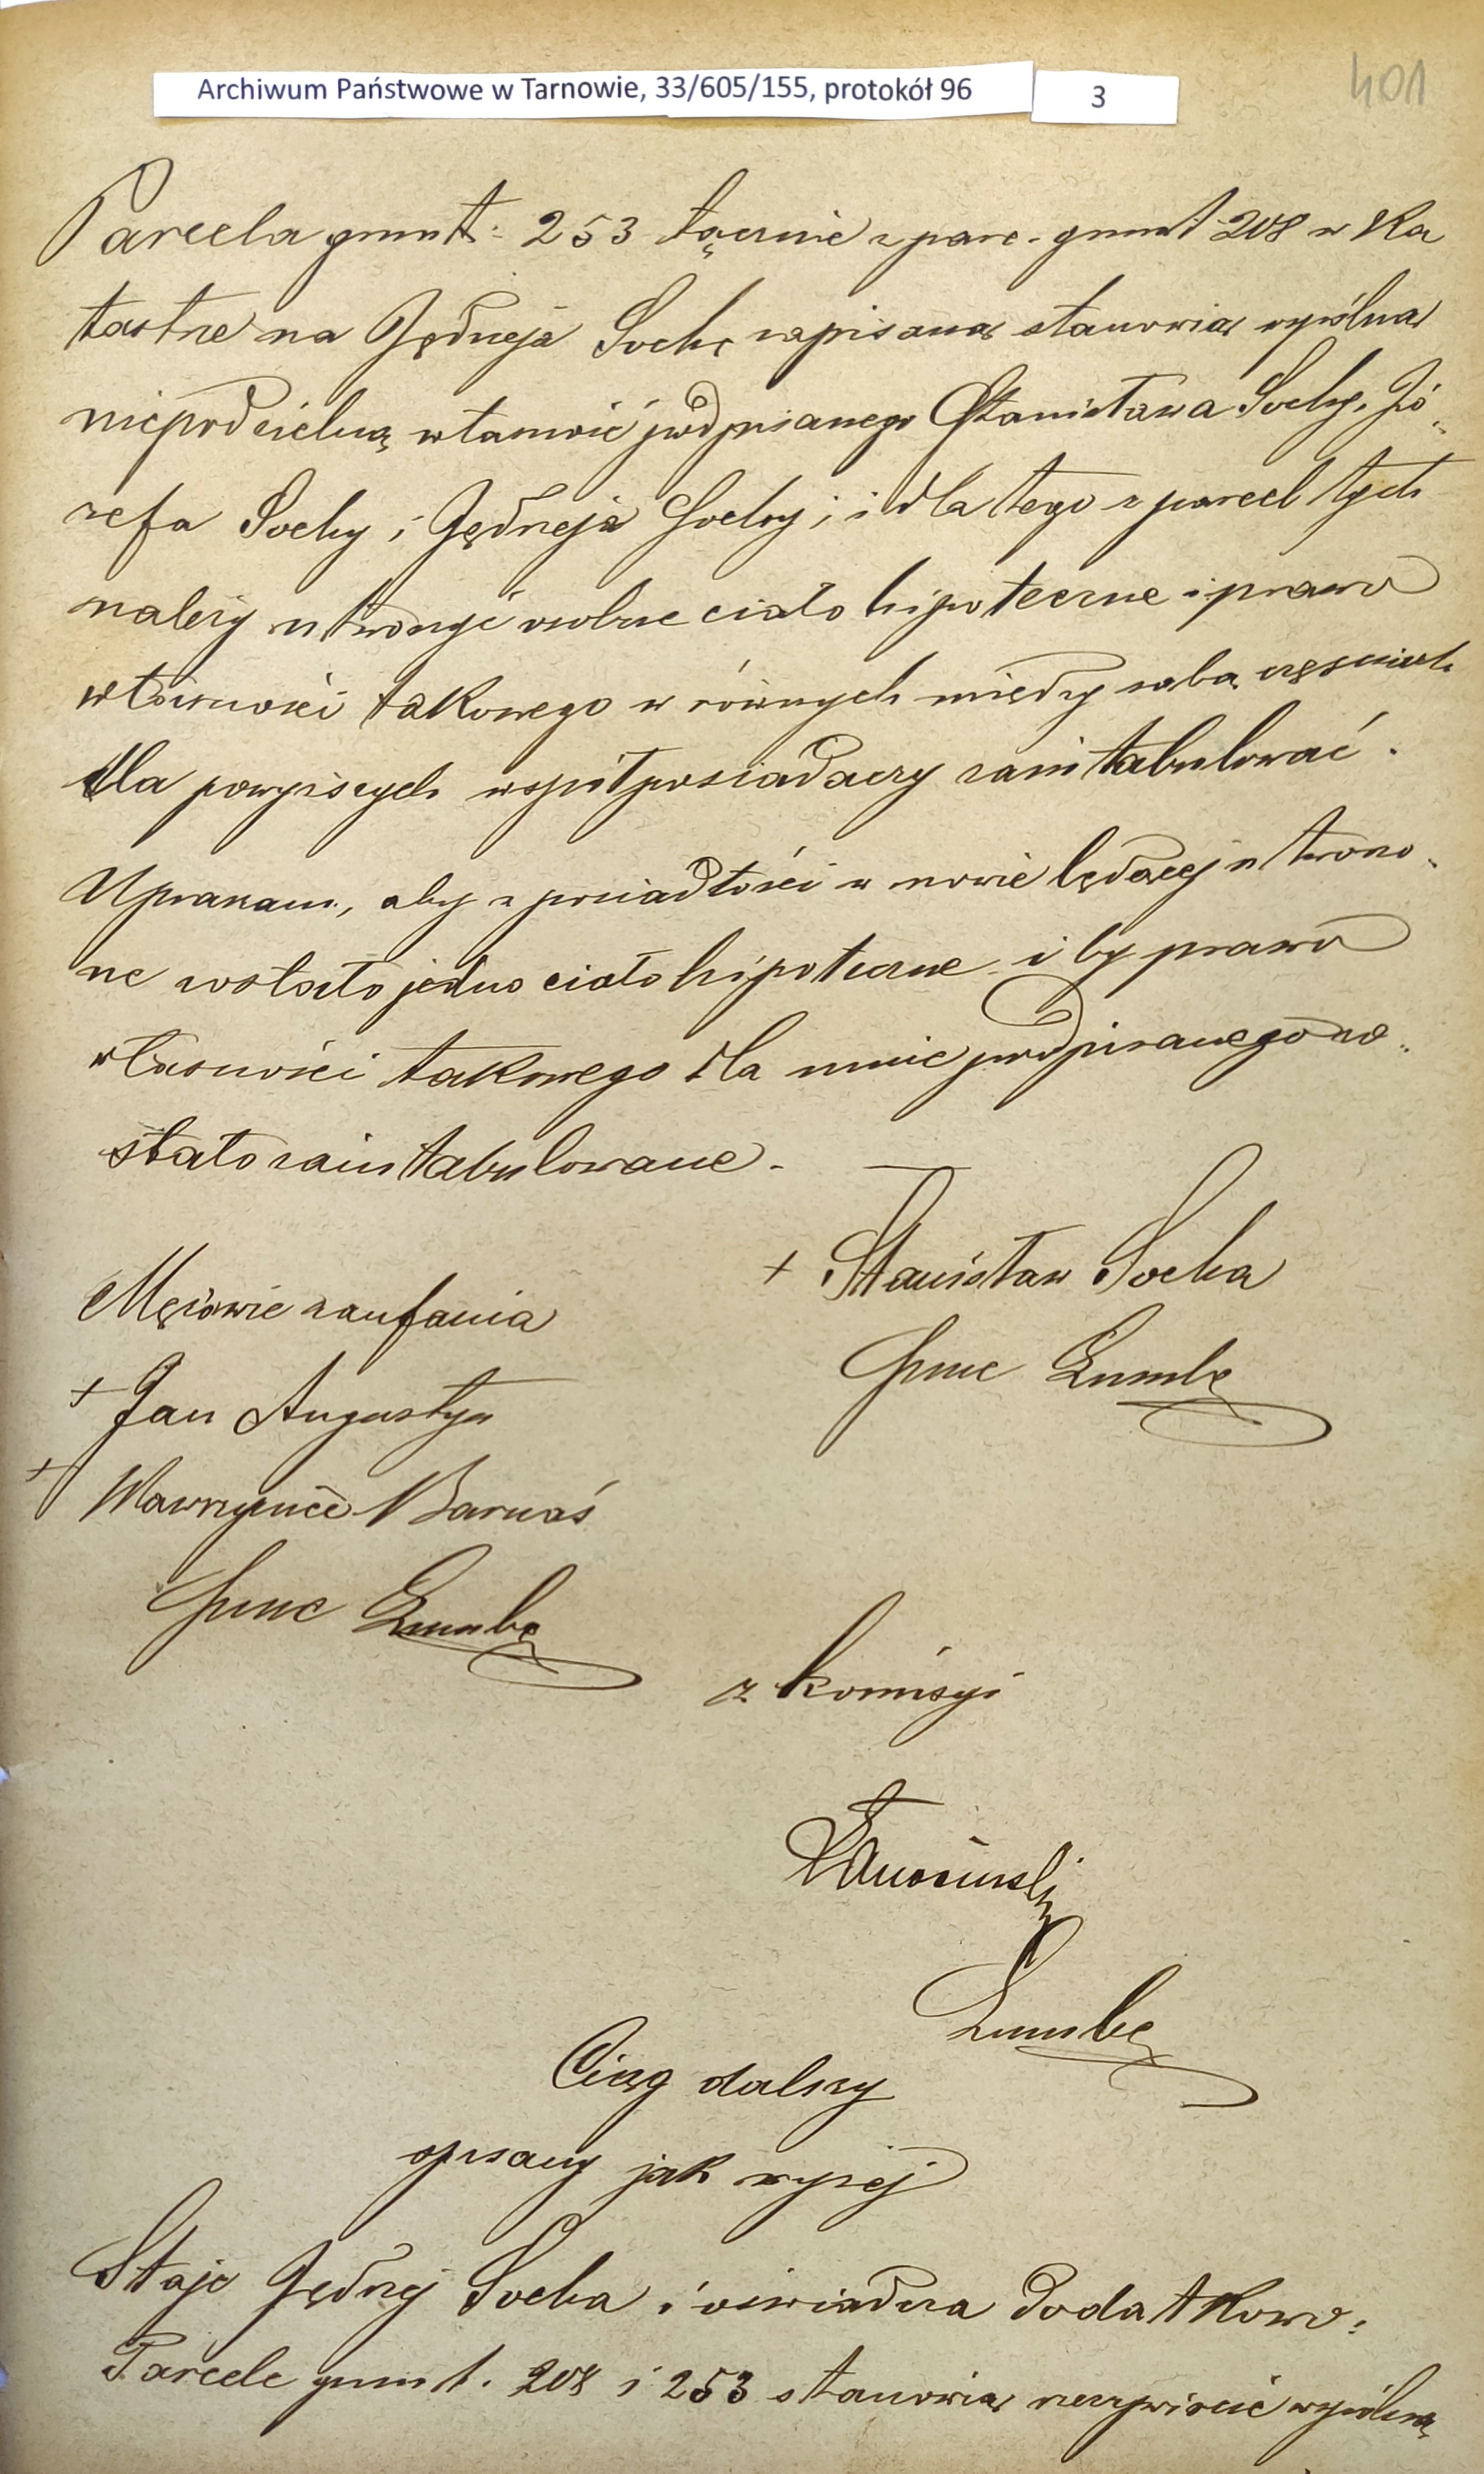 Archiwum Państwowe w Tarnowie, 33/605/155, protokół 96
3
401
Parcela grunt. 253 łącznie z parc. grunt 208 w Ka
tastrze na Jędrzeja Sochę zapisaną stanowią wspólną
niepodzielną własność podpisanego Stanisława Sochy, Jó„
zefa Sochy i Jędrzeja Sochy; i dla tego z parcel tych
należy utworzyć osobne ciało hipoteczne i prawo
własności takowego w równych między sobą częściach
dla powyższych współposiadaczy zaintabulować.
Upraszam, aby z posiadłości w mowie będącej utworzo„
ne zostało jedno ciało hipoteczne i by prawo
własności takowego dla mnie podpisanego zo„
stało zaintabulowane.
+ Stanisław Socha
Mężowie zaufania
+ Jan Augustyn
+ Wawrzyniec Barnaś
z komisyi
Ciąg dalszy
spisany jak wyżej
Staje Jędrzej Socha i oświadcza dodatkowo:
Parcele grunt. 208 i 253 stanowią rzeczywiście wspólną